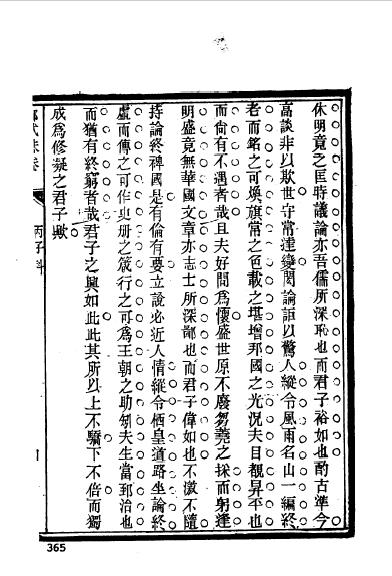 休明竟乏匡時議論亦吾儒所深恥也而君子裕如也酌古準今
高談非以欺世守常達變閎論詎以驚人縱令風雨名山一編終
老而銘之可煥旗常之色載之堪增邦國之光況夫目覩昇平也
而尚有不遇者哉且夫好問爲懷盛世原不廢芻蕘之採而躬逢
明盛竟無華國文章亦志士所深鄙也而君子偉如也不激不隨
持論終裨國是有倫有要立說必近人情縱令栖皇道路坐論終
虛而傳之可作史册之箴行之可爲王朝之助矧夫生當郅治也
而猶有終窮者哉君子之興如此此其所以上不驕下不倍而獨
成爲修凝之君子歟
丙子科
365